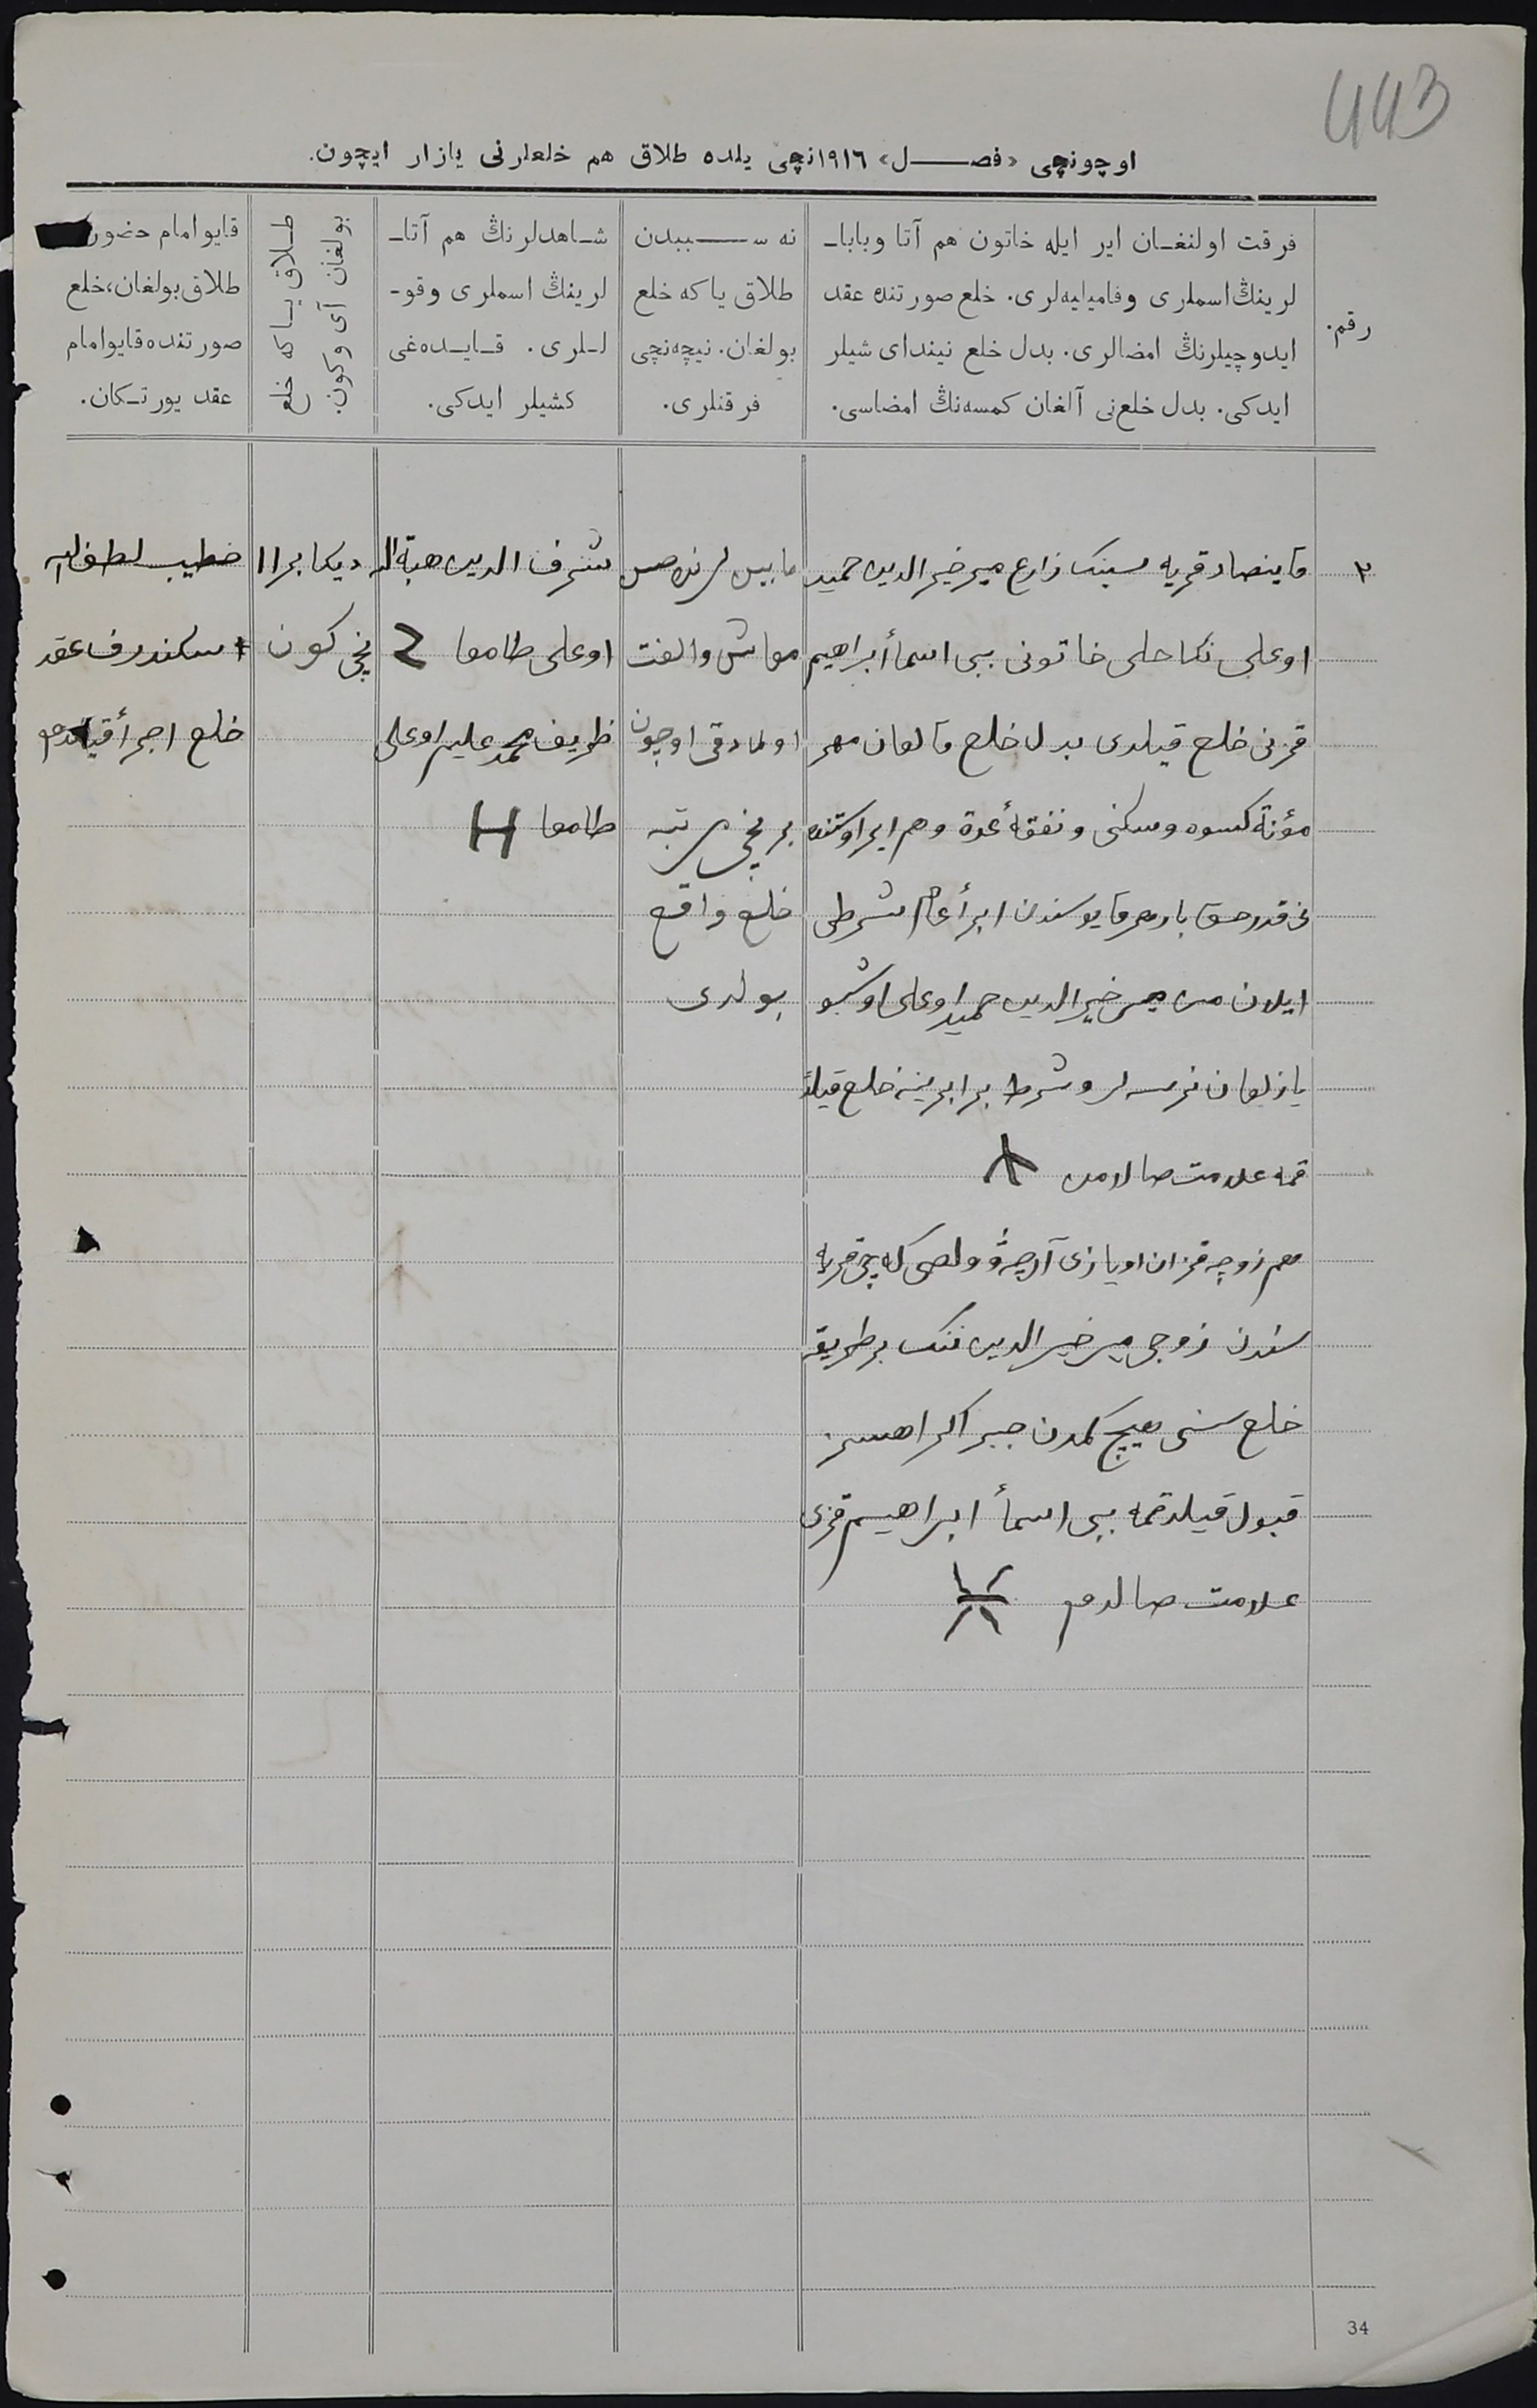 443
اوچونچی «فصل» ١٩١٦نچی یلده طلاق هم خلعلرنی یازار ایچون.
رقم.
فرقت اولنغان ایر ایله خاتون هم آتا وبابا-
لرینڭ اسملری وفامیلیه‌لری. خلع صورتنده عقد
ایدوچیلرنڭ امضالری. بدل خلع نیندای شیلر
ایدکی. بدل خلع‌نی آلغان کمسه‌نڭ امضاسی.
نه سببدن
طلاق یا که خلع
بولغان. نیچه‌نچی
فرقتلری.
شاهدلرنڭ هم آتا-
لرینڭ اسملری وقو-
للری. قایده‌غی
کشیلر ایدکی.
طلاق یا که خلع
بولغان آی وکون.
قایو امام حضور
طلاق بولغان، خلع
صورتنده قایو امام
عقد یورتکان.
٢
قریه سینک زارع میرخیرالدین حمید
اوغلی نکاحلی خاتونی بی بی اسمأ ابراهیم
قزنی خلع قیلدی بدل خلع قالغان مهر
مؤنة کسوه وسکنی ونفقهٔ عدة وهم
قدر حق بار هر قایوسندن ابرأ عام شرطی
ایلان من میرخیرالدین حمید اوغلی اوشبو
یازلغان نرسه لر وشرط برابرینه خلع
علامت صالدم
هم زوجه قزان اویازی
سندن زوجی میرخیرالدین ننک بر طریقه
خلع سنی هیچ کمدن جبر اکراهسز
قبول بی بی اسمأ ابراهیم قزی
علامت صالدم
مابین لرنده حسن
معاش والفت
اولمادقی اوچون
برنچی مرتبه
خلع واقع
بولدی
شرف الدین هبة الله
اوغلی طامغا
ظریف محمد علیم اوغلی
طامغا
دیکابر ١١
نچی کون
خطیب لطف الله
اسکندروف عقد
خلع اجرأ قیلدم
34